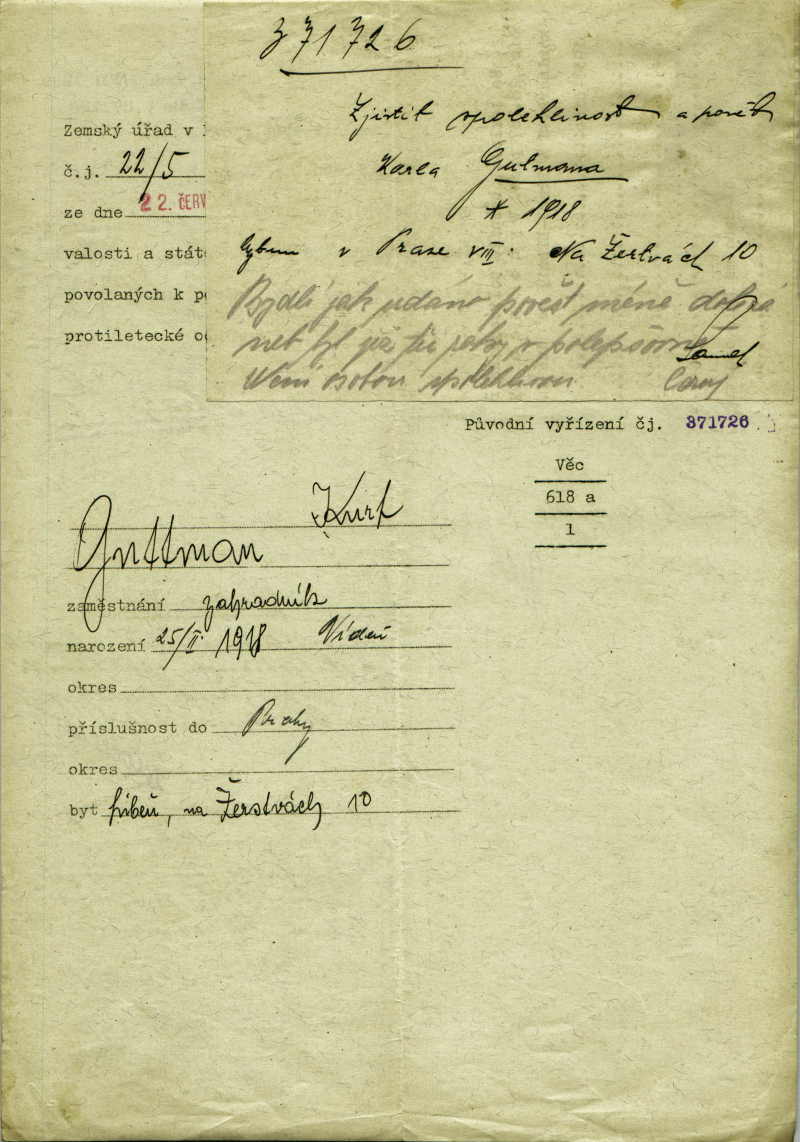 371726
Zjistit spolehlivost a pověst
Karla Gutmana
* 1918
bytem v Praze VIII. Na Žertvách 10
Bydlí jak udáno pověst méně dobrá
neb byl již tři roky v polepšovně
Není osobou spolehlivou Černý
Zemský úřad v
č.j. 22/5
ze dne 22. ČERV
valosti a stát
povolaných k p
protiletecké o
Původní vyřízení čj. 371726
Věc
618 a
1
Kurt
Guttman
zaměstnání zahradník
narození 25/II. 1918 Vídeň
okres
příslušnost do Prahy
okres
byt Libeň, na Žerstvách 10